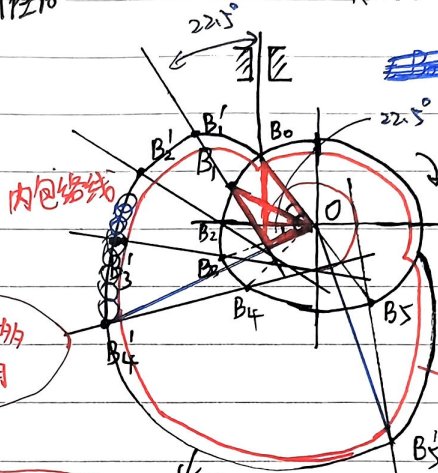 22.5°
B₀
22.5°
B₁'
B₂'
B₁
内包络线
O
B₂
B₃
B₃'
B₄
B₅
B₄'
B₅'